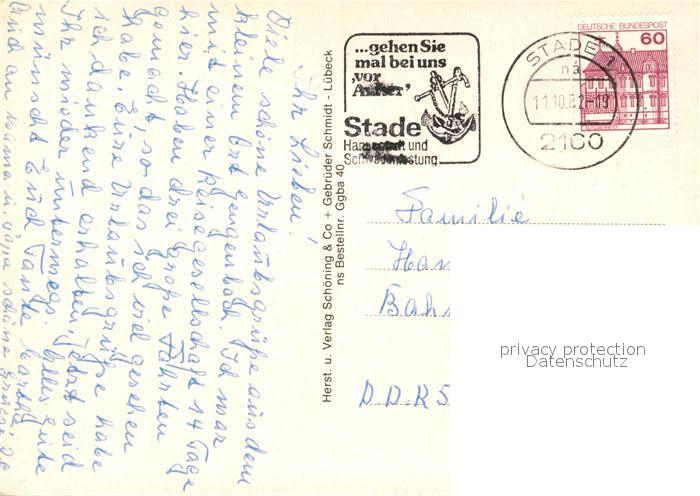 Ihr Lieben!
Viele schöne Urlaubsgrüße aus dem
kleinen Ort Gengenbach. Ich war
mit einer Reisegesellschaft 14 Tage
hier. Haben drei große Fahrten
gemacht so das ich viel gesehen
habe. Eure Urlaubsgrüße habe
ich dankend erhalten, jetzt seid
Ihr wieder unterwegs. Alles gute
wünscht Euch Tante
Und an Mama u. Papa schöne Grüße
Herst. u. Verlag Schöning & Co + Gebrüder Schmidt - Lübeck
ns Bestellnr. Ggba 40
...gehen Sie
mal bei uns
‚vor
Anker'
Stade
Hansestadt und
Schwedenfestung
STADE 1
na
11.10.82-18
2160
DEUTSCHE BUNDESPOST
60
Familie
Han
Bah
DDR 5
privacy protection
Datenschutz